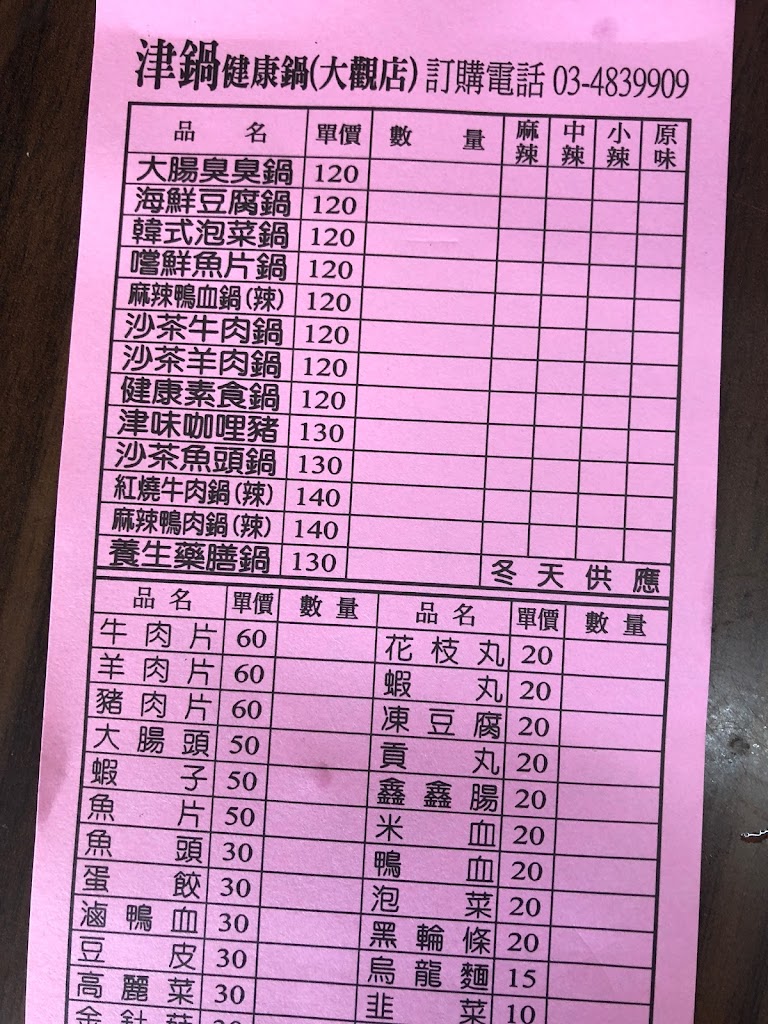 津鍋健康鍋(大觀店) 訂購電話 03-4839909
品名 單價 數量 麻辣 中辣 小辣 原味
大腸臭臭鍋 120
海鮮豆腐鍋 120
韓式泡菜鍋 120
嚐鮮魚片鍋 120
麻辣鴨血鍋(辣) 120
沙茶牛肉鍋 120
沙茶羊肉鍋 120
健康素食鍋 120
津味咖哩豬 130
沙茶魚頭鍋 130
紅燒牛肉鍋(辣) 140
麻辣鴨肉鍋(辣) 140
養生藥膳鍋 130 冬天供應
品名 單價 數量 品名 單價 數量
牛肉片 60 花枝丸 20
羊肉片 60 蝦丸 20
豬肉片 60 凍豆腐 20
大腸頭 50 貢丸 20
蝦子 50 鑫鑫腸 20
魚片 50 米血 20
魚頭 30 鴨血 20
蛋餃 30 泡菜 20
滷鴨血 30 黑輪條 20
豆皮 30 烏龍麵 15
高麗菜 30 韭菜 10
金針菇